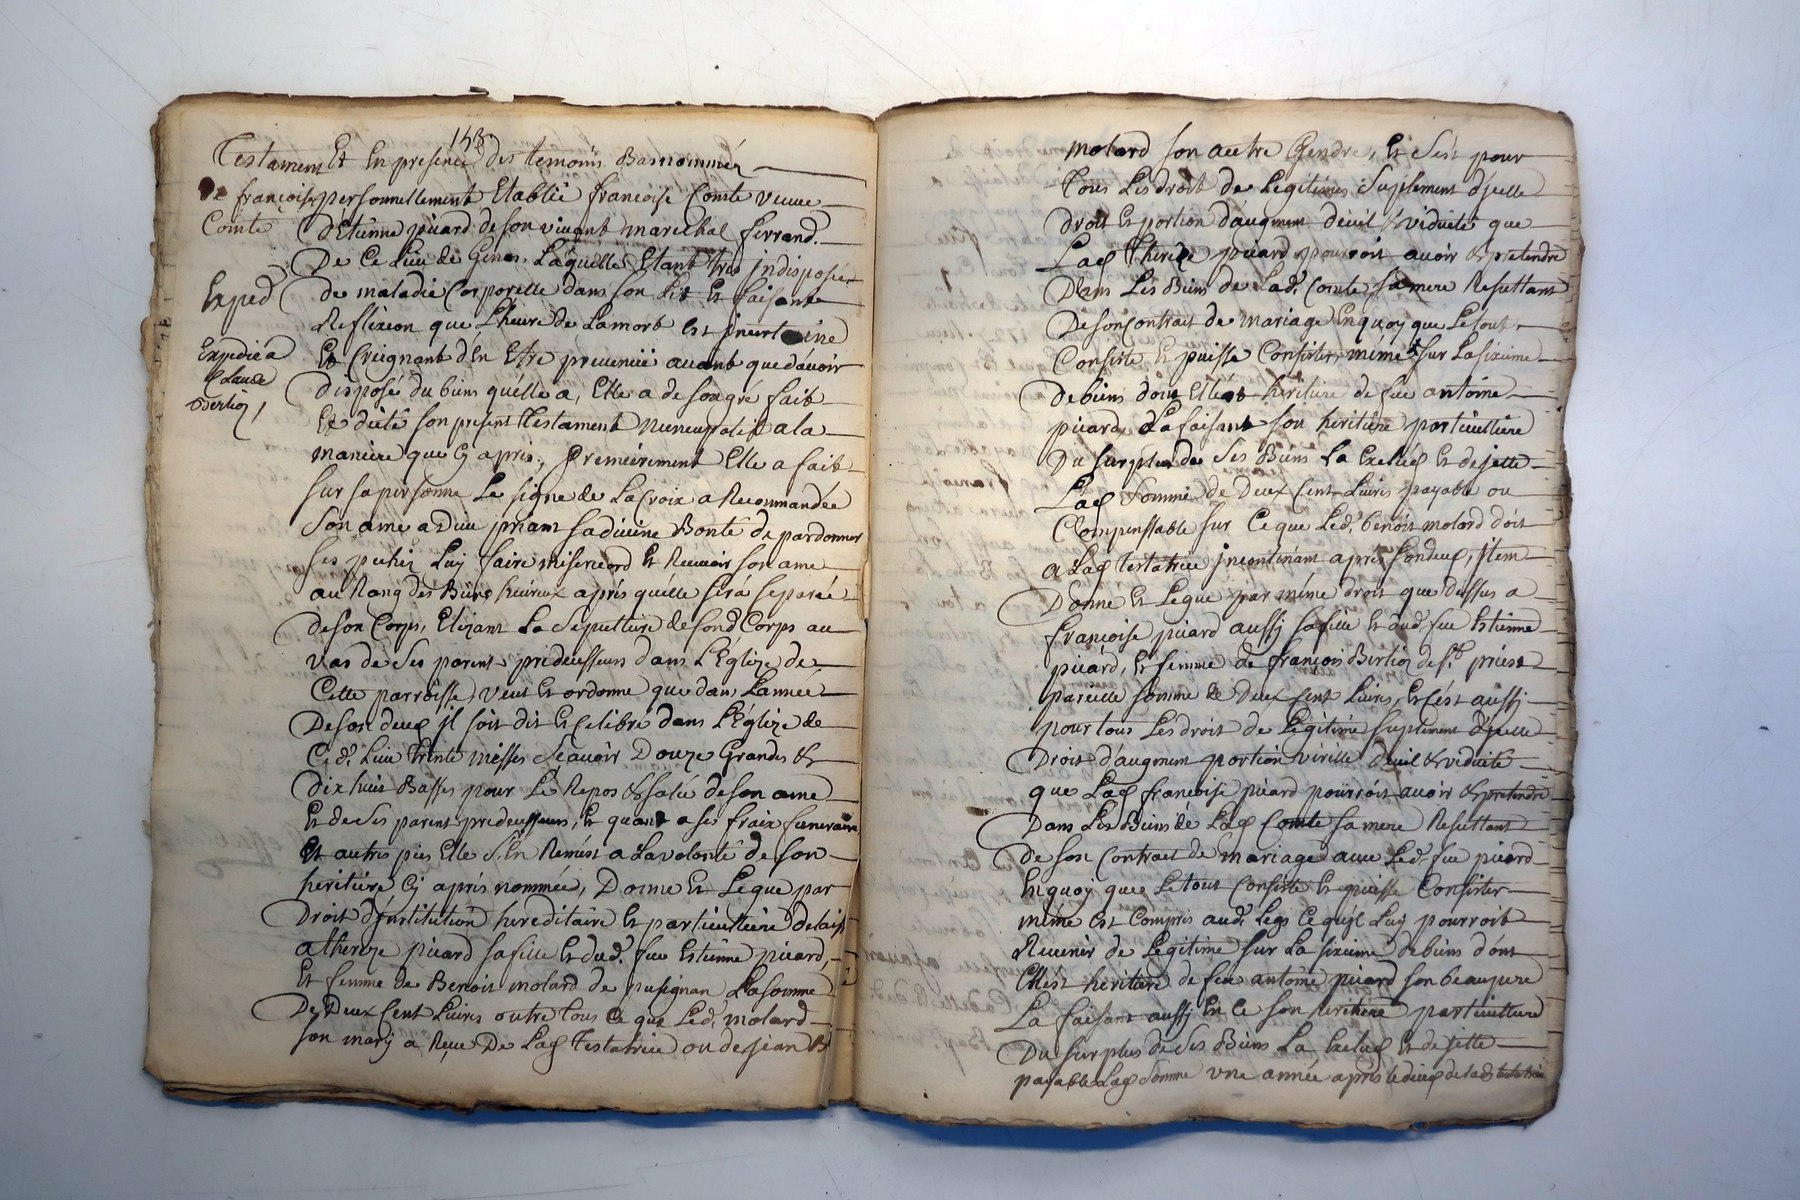 153
Testament
de françoise
Comte
Exped
Expedié a
Claude
Bertier
Et En presence des temoins Basnommés
personnellement Etablie francoise Comte veuve
d'Etienne picard de son vivant marechal ferrand.
De Ce Lieu de Genas. Laquelle Etant tres Indisposée
de maladie Corporelle dans son Lit Et faisant
Reflexion que l'heure de La mort est incertaine
Et Creignant d'En Etre prevenüe avant que d'avoir
disposé du biens qu'elle a, Elle a de son gré fait
Et dicté son present Testament nuncupatif a la
maniere que Cy apres, premierement Elle a fait
sur sa personne Le signe de La Croix a Recommandée
son ame a Dieu priant sa divine Bonté de pardonner
ses pechez Luy faire misericord Et Recevoir son ame
au Rang des Biens heureux aprés qu'elle sera separée
de son Corps, Elizant La Sepulture de sond Corps au
vas de ses parent predecesseurs dans L'Eglize de
Cette parroisse, veut Et ordonne que dans L'année
De son decez il soit dit Et Celebré dans L'Eglize de
Ce d. Lieu trente messes scavoir Douze Grandes &
Dix huit Basses pour Le Repos & salut de son ame
Et de ses parent predecesseurs, Et quant a ses fraix funeraire
Et autres pies Elle S'En Remest a La volonté de son
heritiere Cy aprés nommée, Donne Et Legue par
Droit d'jnstitution hereditaire Et particuliere delaisse
a thereze picard sa fille Et dud. feu Estienne picard,
Et femme de Benoit molard de pusignan La somme
De Deux Cent Livres outre tous Ce que Led. molard
son mary a Reçue De Lad Testatrice ou de jean B
molard son autre Gendre, Et C'est pour
Tous Les droit de Legitimes Suplement d'jcelle
droit Et portion d'augment deuil & viduité que
Lad Thereze picard pourroit avoir & pretendre
Dans Les Biens de Lad. Comte sa mere Resultant
De son Contrait de mariage En quoy que Le tout
Consiste Et puisse Consister, méme sur La sixieme
De biens dont Elle est heritiere de feu antoine
picard La faisant son heritiere particulliere
Du surplus de ses Biens La Exclud Et dejette
Lad Somme de Deux Cent Livres payable ou
Compenssable sur Ce que Led. benoit molard doit
a Lad Testatrice jncontinant aprés son decez, jtem
Donne Et Legue par méme droit que dessus a
francoise picard aussy sa fille Et dud. feu Estienne
picard, Et femme de francois Bertier de St. priest
pareille somme de Deux Cent Livres, Et c'est aussy
pour tous Les droit de Legitime suplement d'jcelle
Droit d'augment portion virille deuil & viduité
que Lad francoise picard pourroit avoir & pretendre
Dans Les Biens de Lad Comte sa mere Resultant
de son Contrait de mariage avec Led. feu picard
En quoy que Le tout Consiste Et puisse Consister
méme est Compris aud. Legs Ce qu'il Luy pourroit
Revenir de Legitime sur La sixieme de biens dont
Elle est heritiere de feu antoine picard son beaupere
La faisant aussy En Ce son heritiere particuliere
Du surplus de ses Biens La Exclud Et dejette
payable Lad Somme une année aprés le decez de lad testatrice